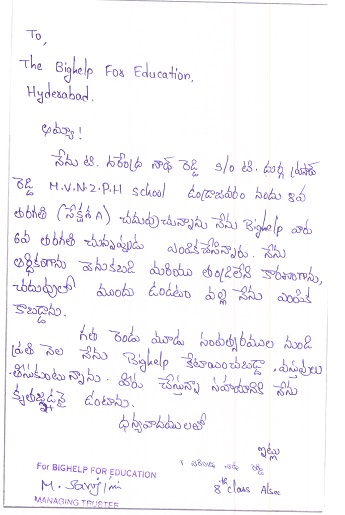 To,
The Bighelp For Education,
Hyderabad.
అమ్మా !
నేను టి. నరేంద్ర నాథ్ రెడ్డి S/o టి. దుర్గ ప్రసాద్
రెడ్డి M.V.N.Z.P.H school ఉండ్రాజవరం నందు 8వ
తరగతి (సెక్షన్ A) చదువుచున్నాను నేను Bighelp వారు
6వ తరగతి చున్నప్పుడు ఎంపికచేసినారు. నేను
ఆర్థికంగాను వెనుకబడి మరియు తండ్రిలేని కారణంగాను,
చదువులో ముందు ఉండటం వల్ల నేను ఎంపిక
కాబడ్డాను.
గత రెండు మూడు సంవత్సరముల నుండి
ప్రతి నెల నేను Bighelp కేటాయించబడ్డా వస్తువులు
తీసుకుంటున్నాను. మీరు చేస్తున్నా సహాయానికి నేను
కృతజ్ఞుడనై ఉంటాను.
ధన్యవాదములతో
ఇట్లు
8th class Alsec
For BIGHELP FOR EDUCATION
MANAGING TRUSTEE